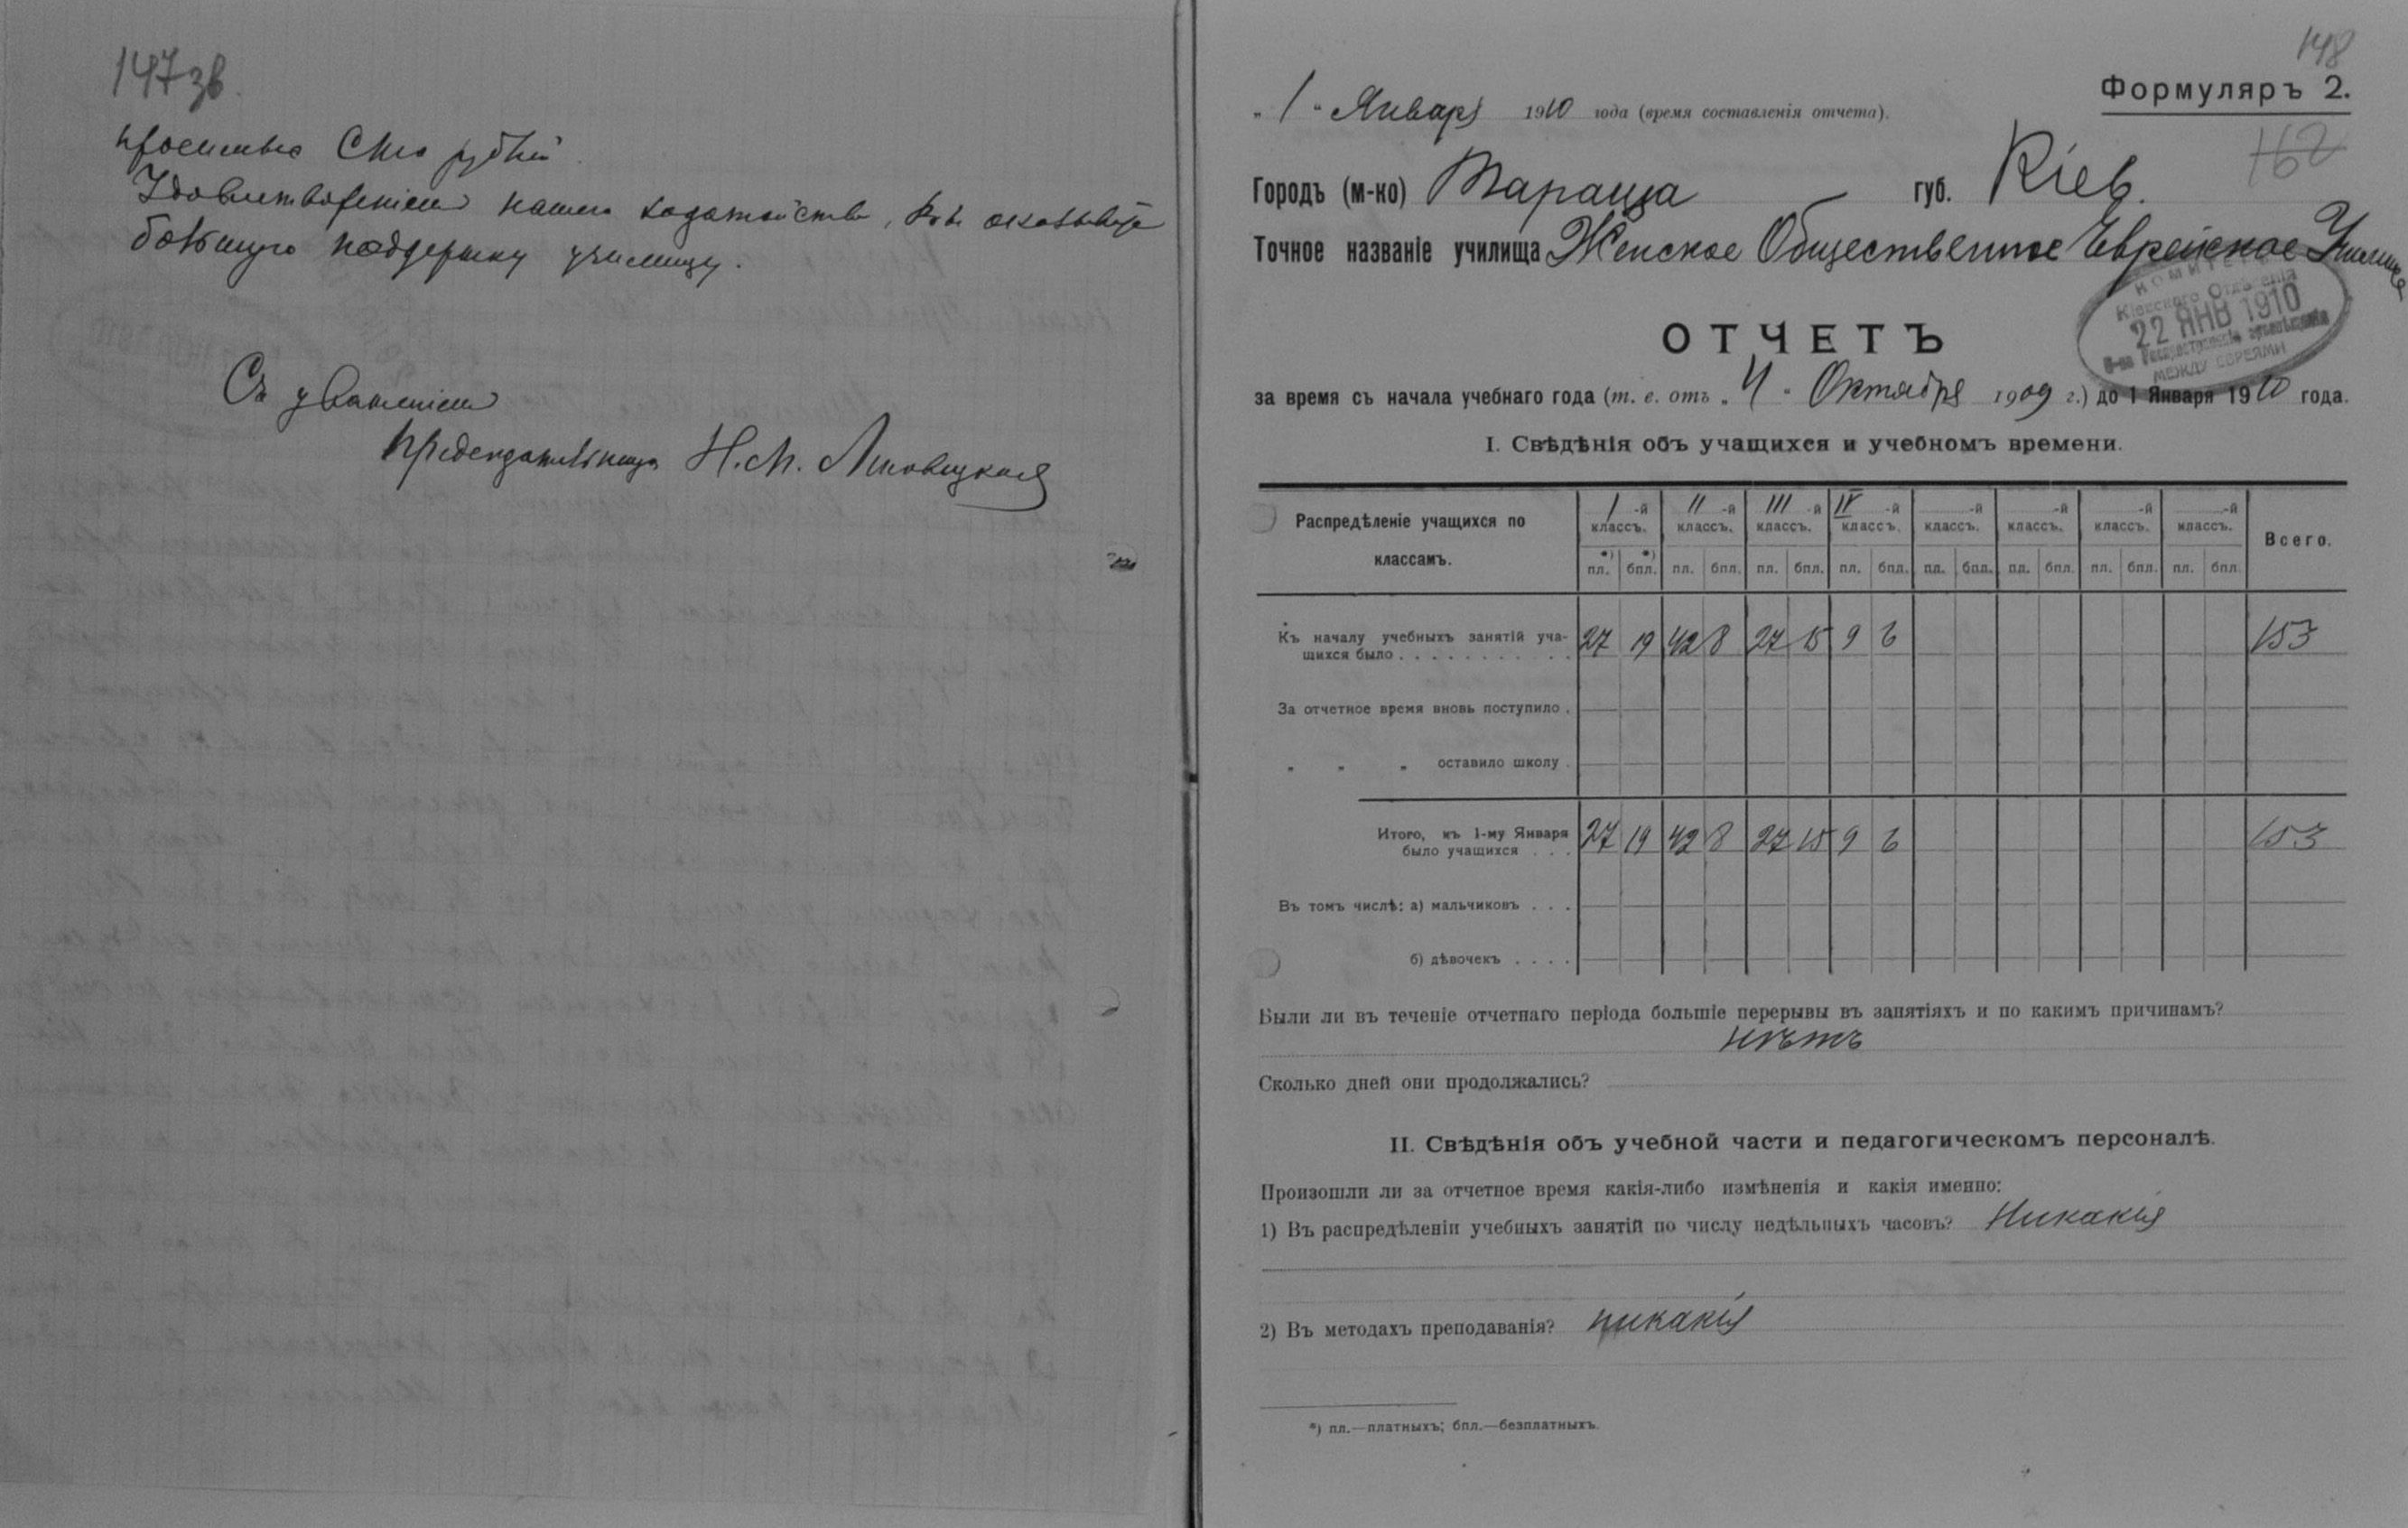 147зв.
Сто рублей
Удовлетвореніемъ нашего ходатайства, Вы окажете
большую поддержку училищу.
Съ уваженіемъ
Предсѣдательница Н. М.
148
Формуляръ 2.
„ 1 “ Январь 1910 года (время составленія отчета).
162
Городъ (м-ко) Тараща губ. Кіев.
Точное названіе училища Женское Общественное Еврейское Училище
КОМИТЕТЪ
Кіевскаго Отдѣленія
22 ЯНВ 1910
О-ва Распространенія просвѣщенія
МЕЖДУ ЕВРЕЯМИ
ОТЧЕТЪ
за время съ начала учебнаго года (т. е. отъ „ 4 “ Октября 1909 г.) до 1 Января 1910 года.
I. Свѣдѣнія объ учащихся и учебномъ времени.
Распредѣленіе учащихся по классамъ. I -й классъ. II -й классъ. III -й классъ. IV -й классъ. -й классъ. -й классъ. -й классъ. -й классъ. Всего.
*) пл. *) бпл. пл. бпл. пл. бпл. пл. бпл. пл. бпл. пл. бпл. пл. бпл. пл. бпл.
Къ началу учебныхъ занятій уча-
щихся было . . . . . . . . . . . 27 19 42 8 27 15 9 6 153
За отчетное время вновь поступило .
„ „ „ оставило школу .
Итого, къ 1-му Января
было учащихся . . . 27 19 42 8 27 15 9 6 153
Въ томъ числѣ: а) мальчиковъ . . .
б) дѣвочекъ . . . .
Были ли въ теченіе отчетнаго періода большіе перерывы въ занятіяхъ и по какимъ причинамъ?
нѣтъ
Сколько дней они продолжались?
II. Свѣдѣнія объ учебной части и педагогическомъ персоналѣ.
Произошли ли за отчетное время какія-либо измѣненія и какія именно:
1) Въ распредѣленіи учебныхъ занятій по числу недѣльныхъ часовъ? Никакія
2) Въ методахъ преподаванія? никакія
*) пл.—платныхъ; бпл.—безплатныхъ.